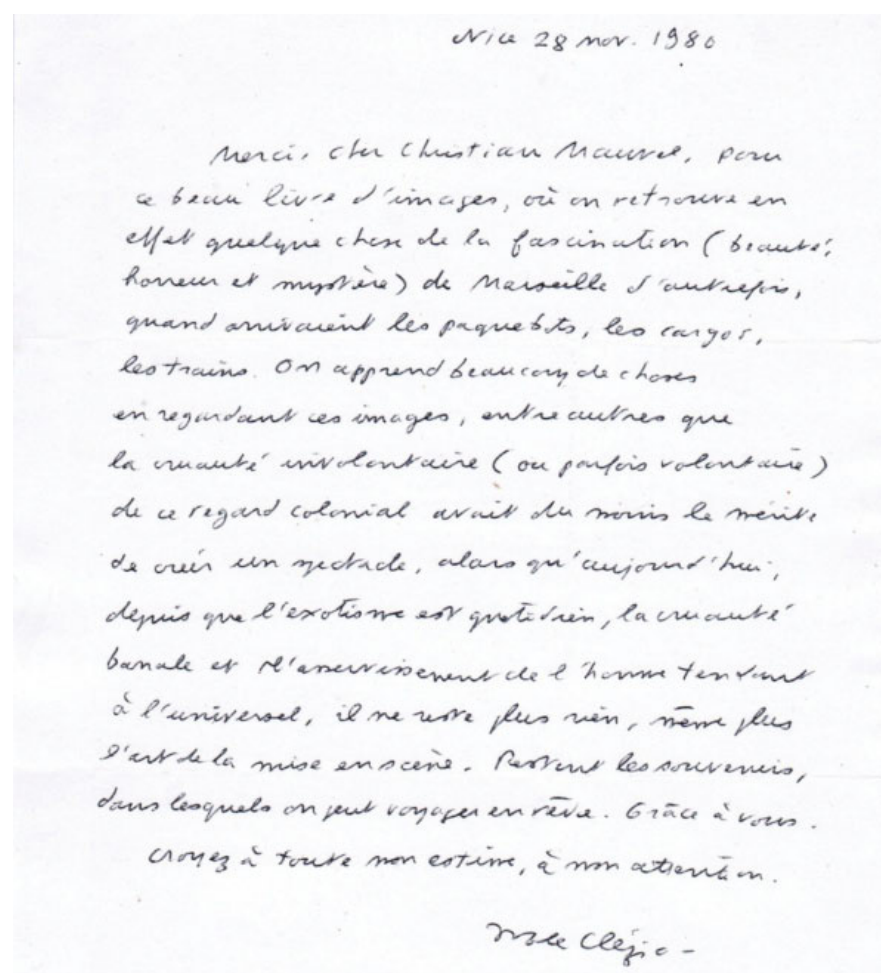 Nice 28 nov. 1980
Merci, cher Christian Maurel, pour
ce beau livre d'images, où on retrouve en
effet quelque chose de la fascination (beauté,
horreur et mystère) de Marseille d'autrefois,
quand arrivaient les paquebots, les cargos,
les trains. On apprend beaucoup de choses
en regardant ces images, entre autres que
la cruauté involontaire (ou parfois volontaire)
de ce regard colonial avait du moins le mérite
de créer un spectacle, alors qu'aujourd'hui,
depuis que l'exotisme est quotidien, la cruauté
banale et l'asservissement de l'homme tendant
à l'universel, il ne reste plus rien, même plus
l'art de la mise en scène. Restent les souvenirs,
dans lesquels on peut voyager en rêve. Grâce à vous.
Croyez à toute mon estime, à mon attention.
Le Clézio